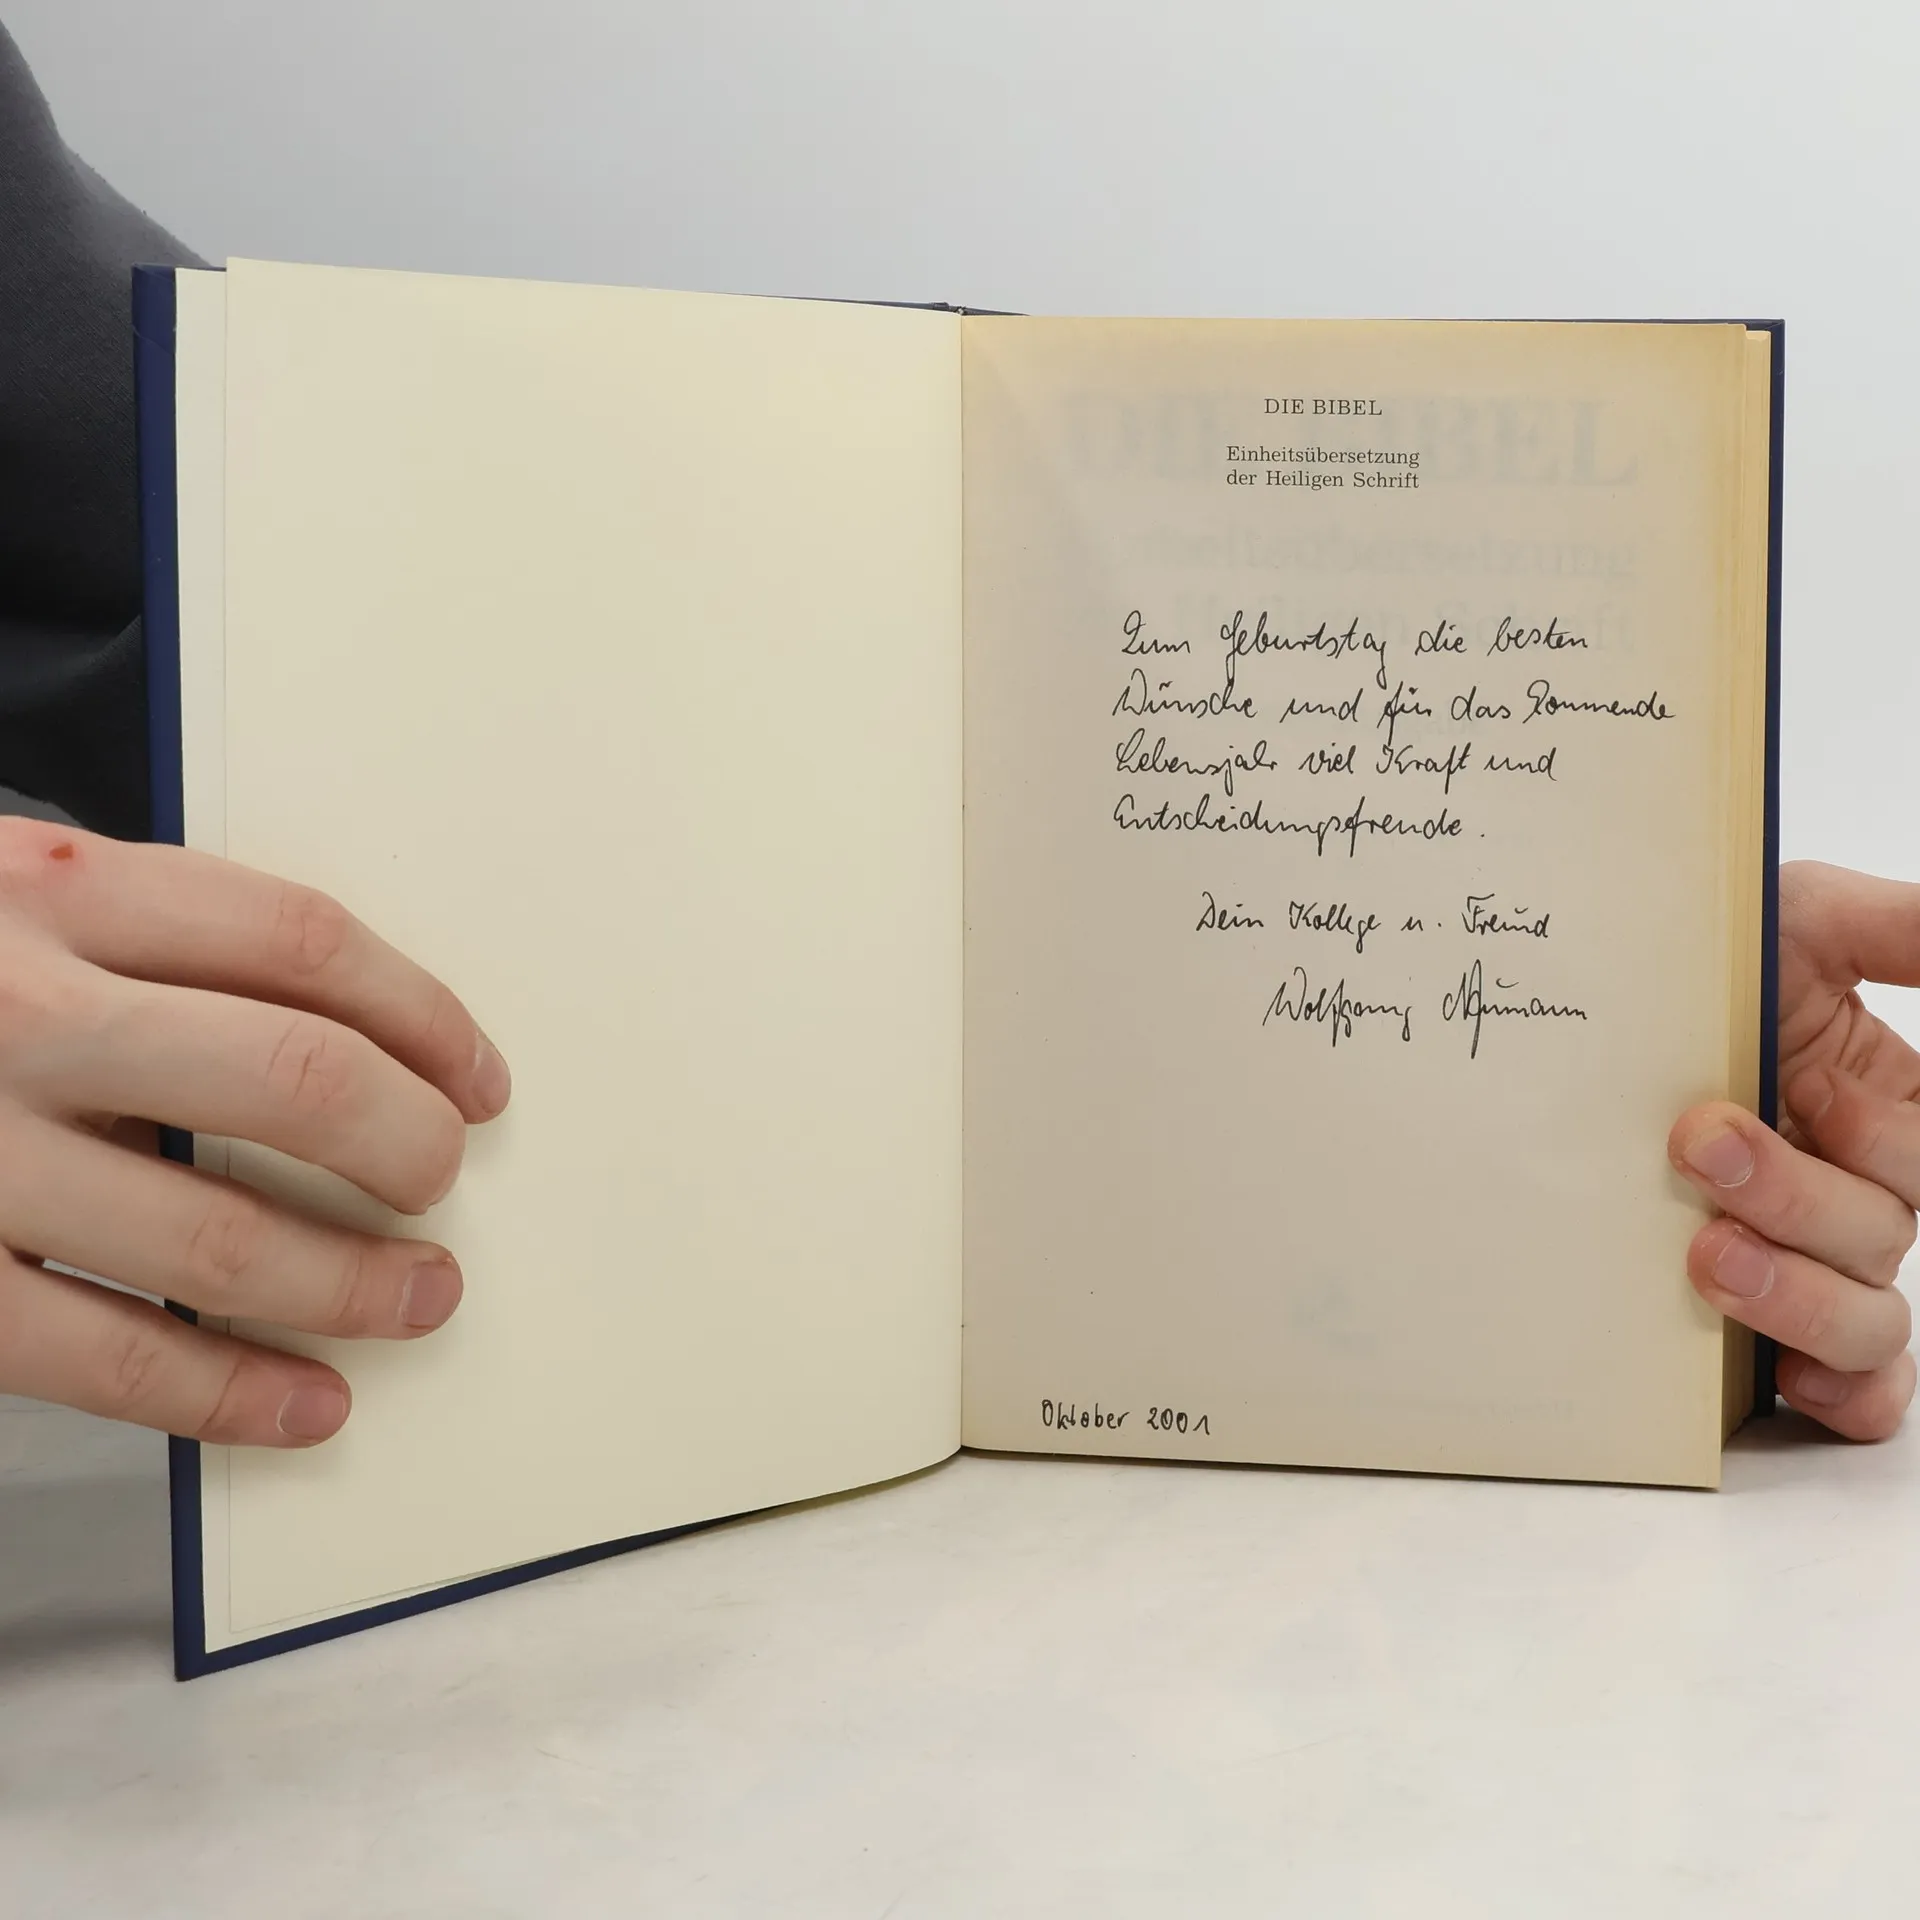 DIE BIBEL
Einheitsübersetzung
der Heiligen Schrift
Zum Geburtstag die besten
Wünsche und für das kommende
Lebensjahr viel Kraft und
Entscheidungsfreude.
Dein Kollege u. Freund
Wolfgang
Oktober 2001